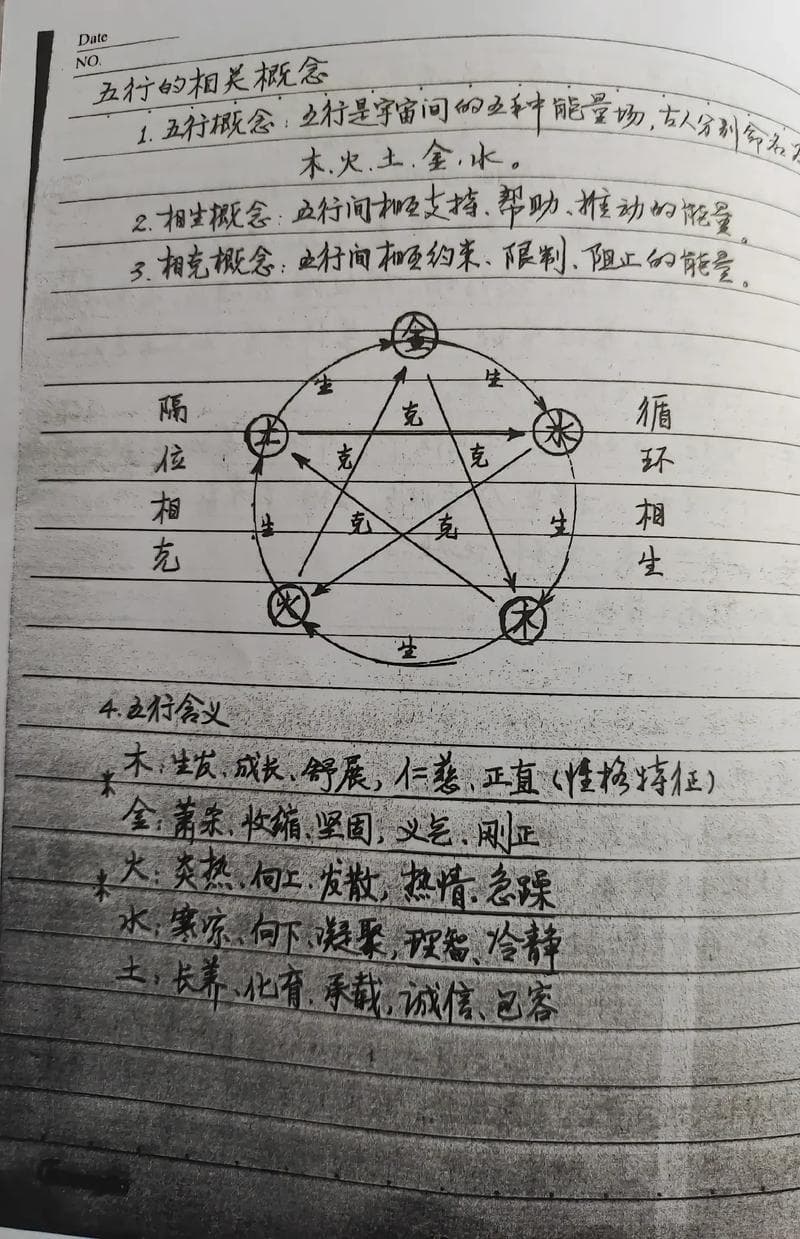 Date
NO.
五行的相关概念
1. 五行概念：五行是宇宙间的五种能量场，古人分别命名为
木、火、土、金、水。
2. 相生概念：五行间相互支持、帮助、推动的能量。
3. 相克概念：五行间相互约束、限制、阻止的能量。
金
生
生
克
土
水
克
克
隔位相克
循环相生
生
克
克
生
火
木
生
4. 五行含义
*木：生发、成长、舒展，仁慈、正直（性格特征）
金：萧杀、收缩、坚固，义气、刚正
*火：炎热、向上、发散，热情、急躁
水：寒凉、向下、凝聚，理智、冷静
土：长养、化育、承载，诚信、包容